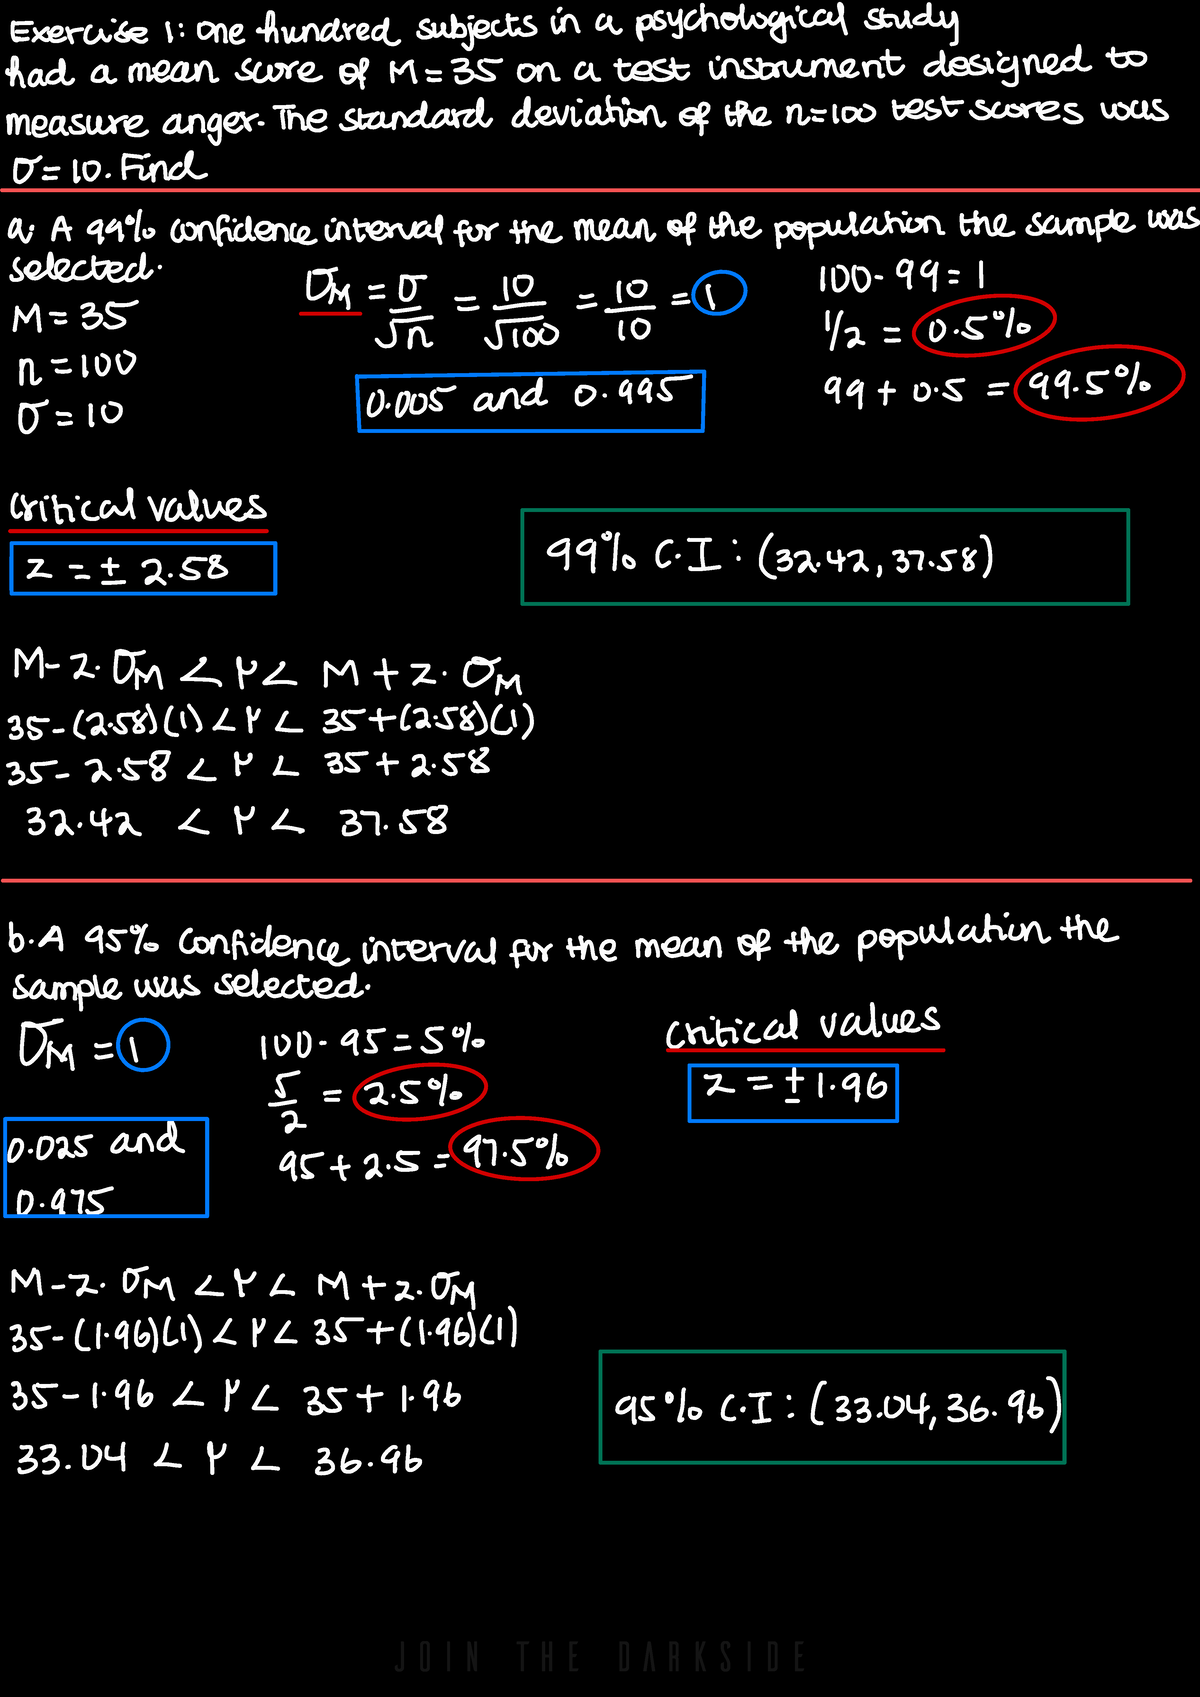 Exercise 1: One hundred subjects in a psychological study
had a mean score of M = 35 on a test instrument designed to
measure anger. The standard deviation of the n=100 test scores was
σ = 10. Find
a. A 99% confidence interval for the mean of the population the sample was
selected.
M = 35
n = 100
σ = 10
σM = σ/√n = 10/√100 = 10/10 = 1
0.005 and 0.995
100 - 99 = 1
1/2 = 0.5%
99 + 0.5 = 99.5%
Critical values
z = ± 2.58
99% C.I : (32.42, 37.58)
M - z. σM < μ < M + z. σM
35 - (2.58)(1) < μ < 35 + (2.58)(1)
35 - 2.58 < μ < 35 + 2.58
32.42 < μ < 37.58
b. A 95% Confidence interval for the mean of the population the
sample was selected.
σM = 1
0.025 and
0.975
100 - 95 = 5%
5/2 = 2.5%
95 + 2.5 = 97.5%
Critical values
z = ± 1.96
M - z. σM < μ < M + z. σM
35 - (1.96)(1) < μ < 35 + (1.96)(1)
35 - 1.96 < μ < 35 + 1.96
33.04 < μ < 36.96
95% C.I : (33.04, 36.96)
JOIN THE DARKSIDE